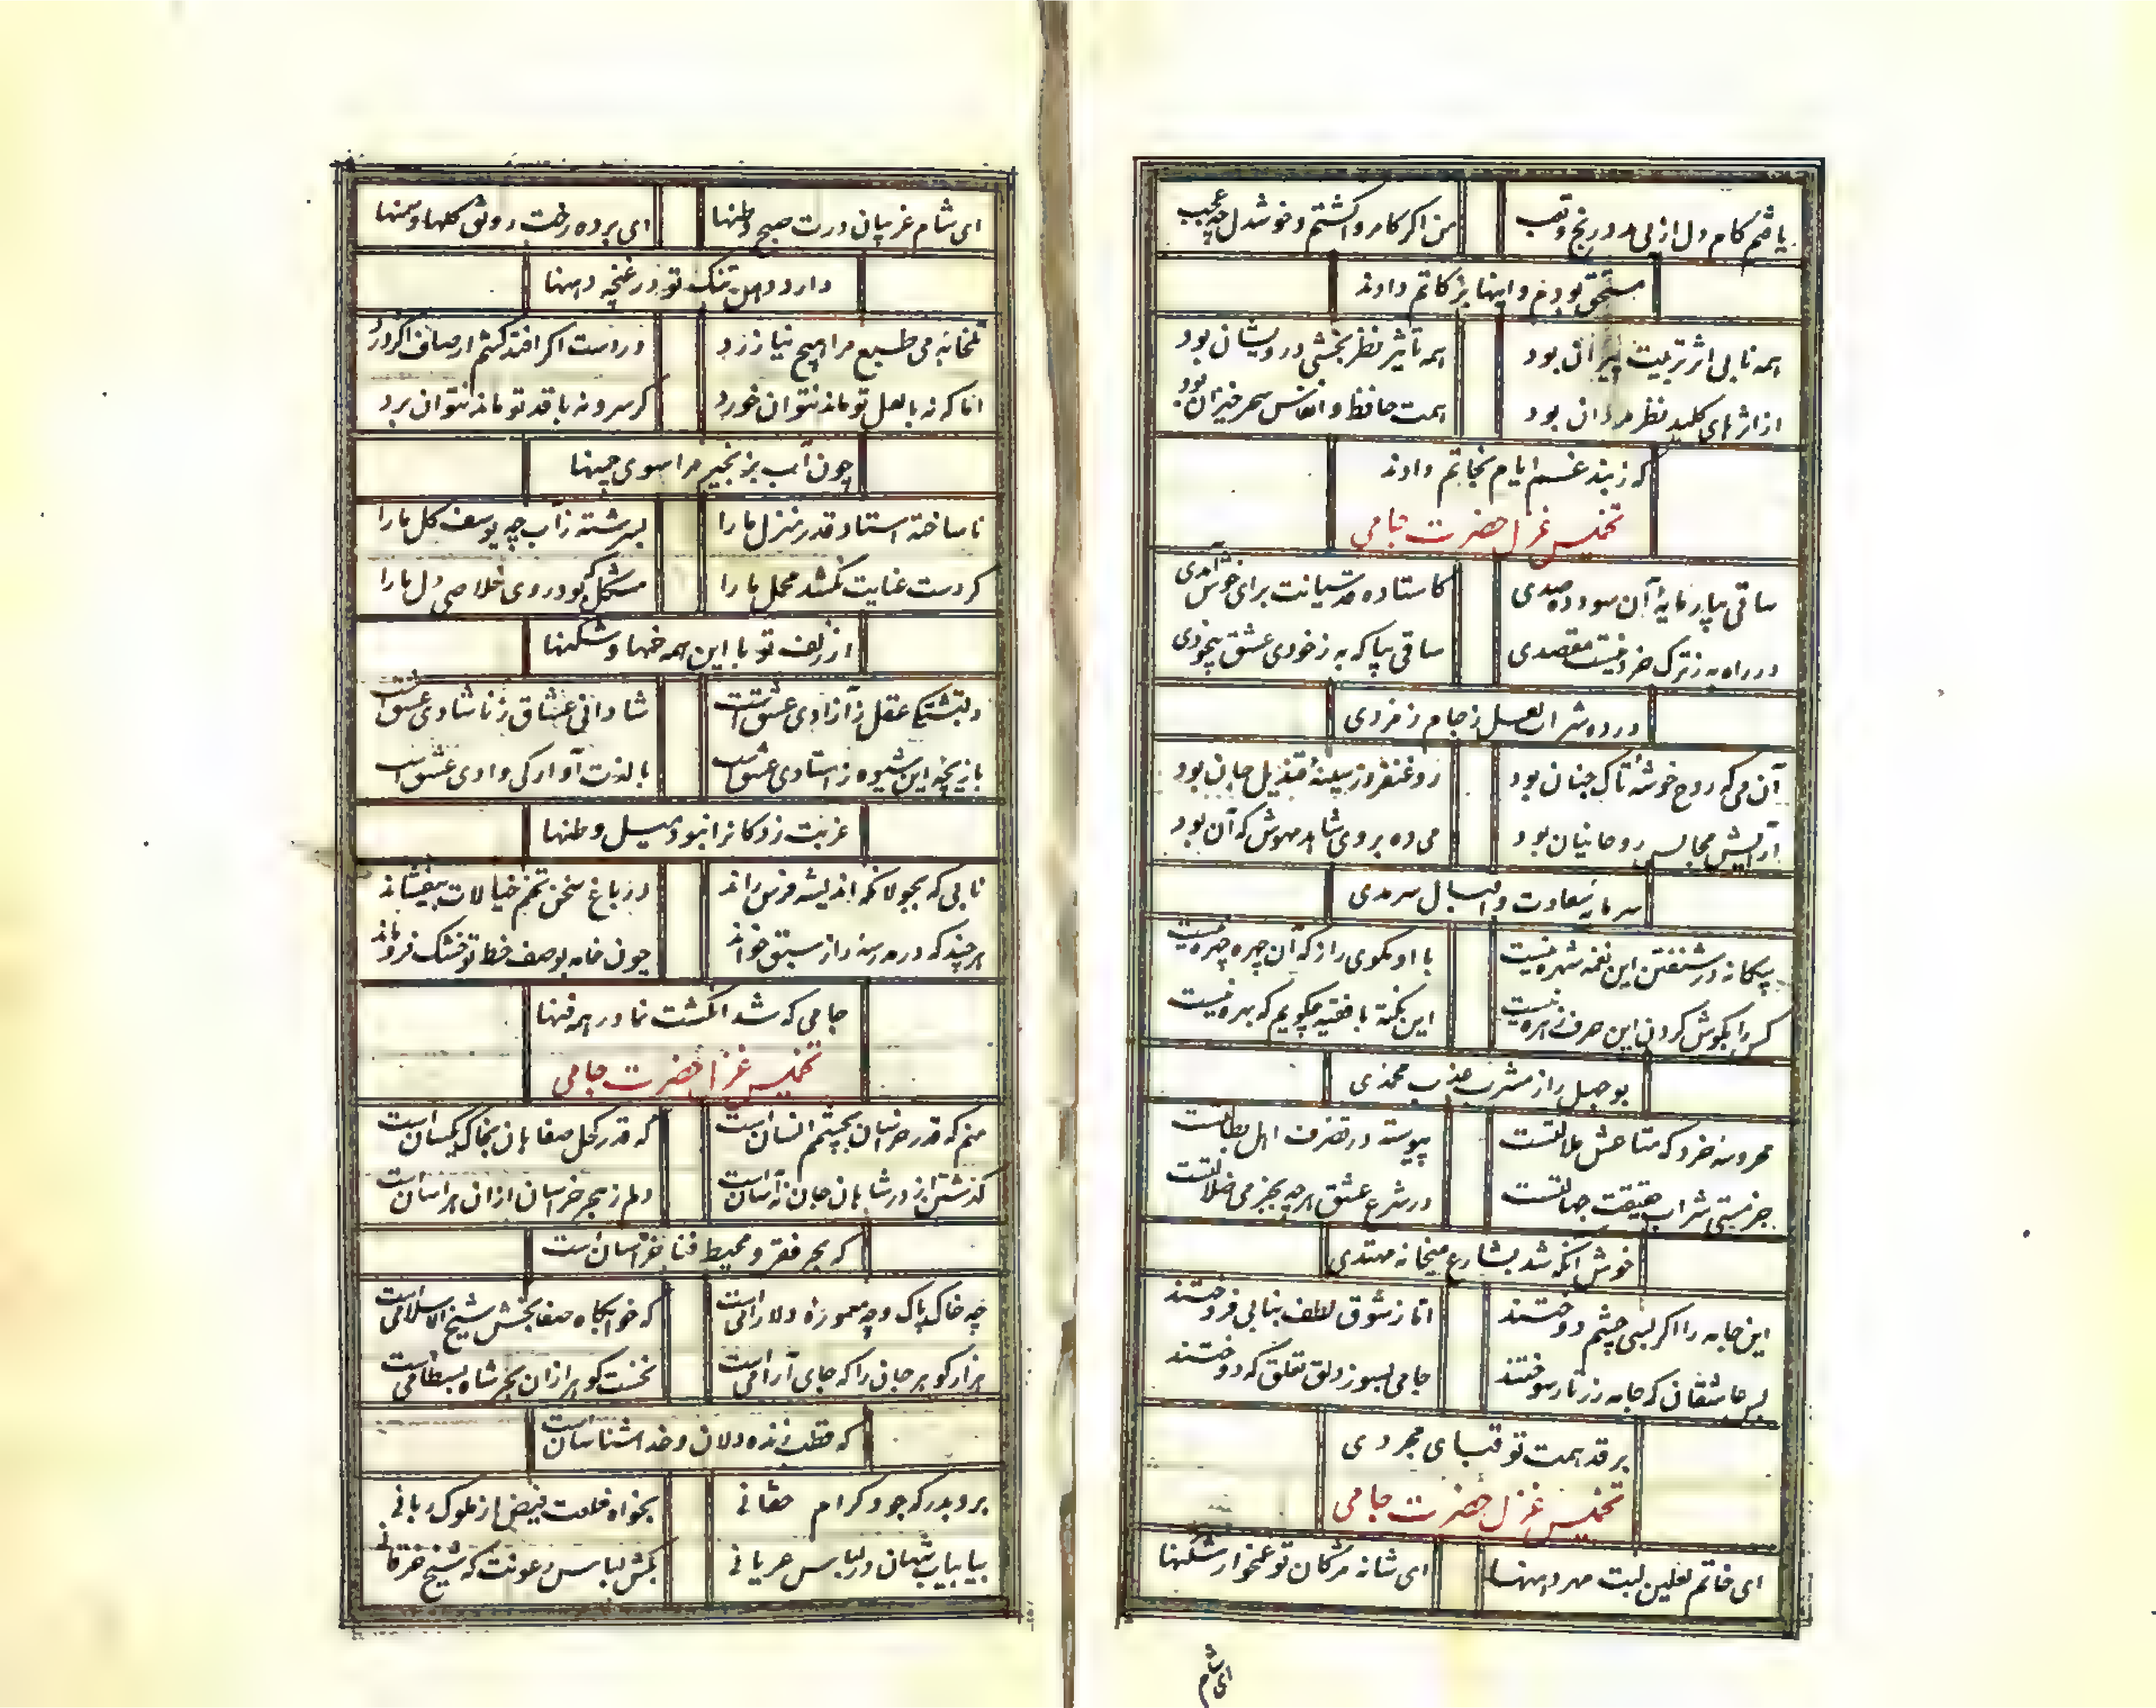 یافتم کام دل از لب در رنج و تعب من اگر کامروا گشتم و خوشدل چه عجب
مستحق بودم و اینها بزکاتم دادند
همه نابی اثر تربیت پیران بود همه تأثیر نظر بخشی درویشان بود
از اثرهای کلید نظر مردان بود همت حافظ و انفاس سحر خیزان بود
که ز بند غم ایام نجاتم دادند
تخمیس غزل حضرت جامی
ساقی بیار مایۀ آن سود ده صدی کاستاده برای خوش آمدی
در راه به ز ترک خرد نیست مقصدی ساقی بیا که به ز خودی عشق بیخودی
در ده شراب لعل ز جام زمردی
آن می که روح خوشۀ تاک جنان بود روغنفروز سینۀ قندیل جان بود
آرایش مجالس روحانیان بود می ده بروی شاهد مهوش که آن بود
سرمایه سعادت و اقبال سرمدی
بیگانه در شنفتن این نغمه شهره نیست با او مگوی راز که آن چهره چهره نیست
کس را بگوش کردن این حرف زهره نیست این نکته با فقیه چگویم که بهره نیست
بوجهل را ز مشرب عذب محمدی
محروسۀ خرد که متاعش علالتست پیوسته در تصرف اهل بطالتست
جز مستی شراب حقیقت جهالتست در شرع عشق هرچه بجز می ضلالتست
خوش آنکه شد بشارع میخانه مهتدی
این جامه را اگر بسی چشم دوختند اما ز شوق لطف بنابی فروختند
بس عاشقان که جامه زرتار سوختند جامی بسوز دلق تعلق که دوختند
بر قد همت تو قبای مجردی
تخمیس غزل حضرت جامی
ای خاتم لعلین لبت مهر دهنها ای شانه مژگان تو غمخوار شکنها
ای شام
ای شام غریبان درت صبح وطنها ای برده رخت رونق گلها و سمنها
دارد دهن تنگ تو در غنچه دهنها
تلخابه می طبع مرا هیچ نیازرد در دست اگر افتد کشم ار صاف اگر درد
اما که نه با لعل تو ماند نتوان خورد گر سرو نه با قد تو ماند نتوان برد
چون آب بزنجیر مرا سوی چمنها
نا ساخته استاد قدر منزل ما را بسرشته ز آب چه یوسف گل ما را
گر دست عنایت نکشد محمل ما را مشکل بود روی خلاصی دل ما را
از زلف تو با این همه خمها و شکنها
دلبستگی عقل ز آزادی عشقست شادانی عشاق ز ناشادی عشقست
بازیچه این شیوه ز استادی عشقست با لذت آوارگی وادی عشقست
غربت زدگانرا نبود میل وطنها
نابی که بجولانگه اندیشه فرس راند در باغ سخن تخم خیالات بیفشاند
هر چند که در مدرسه راز سبق خواند چون خامه بوصف خط تو خشک فروماند
جامی که شد انگشت نما در همه فنها
تخمیس غزل حضرت جامی
منم که قدر خراسان بچشم انسان است که قدر کحل صفاهان بخاک یکسان است
گذشتن از در شاهان جان نه آسان است دلم ز هجر خراسان از آن هراسان است
که بحر فقر و محیط فنا خراسان است
چه خاک پاک و چه معموره دلارامی است که خوابگاه صفابخش شیخ الاسلامی است
هزار گوهر جان را که جای آرامی است نخست گوهر از آن بحر شاه بسطامی است
که قطب زنده دلان و خداشناسان است
برو بدرگه جود و کرام حقانی بخواه خلعت فیض از ملوک ربانی
بیا بباب شهان در لباس عریانی بکش لباس رعونت که شیخ خرقانی